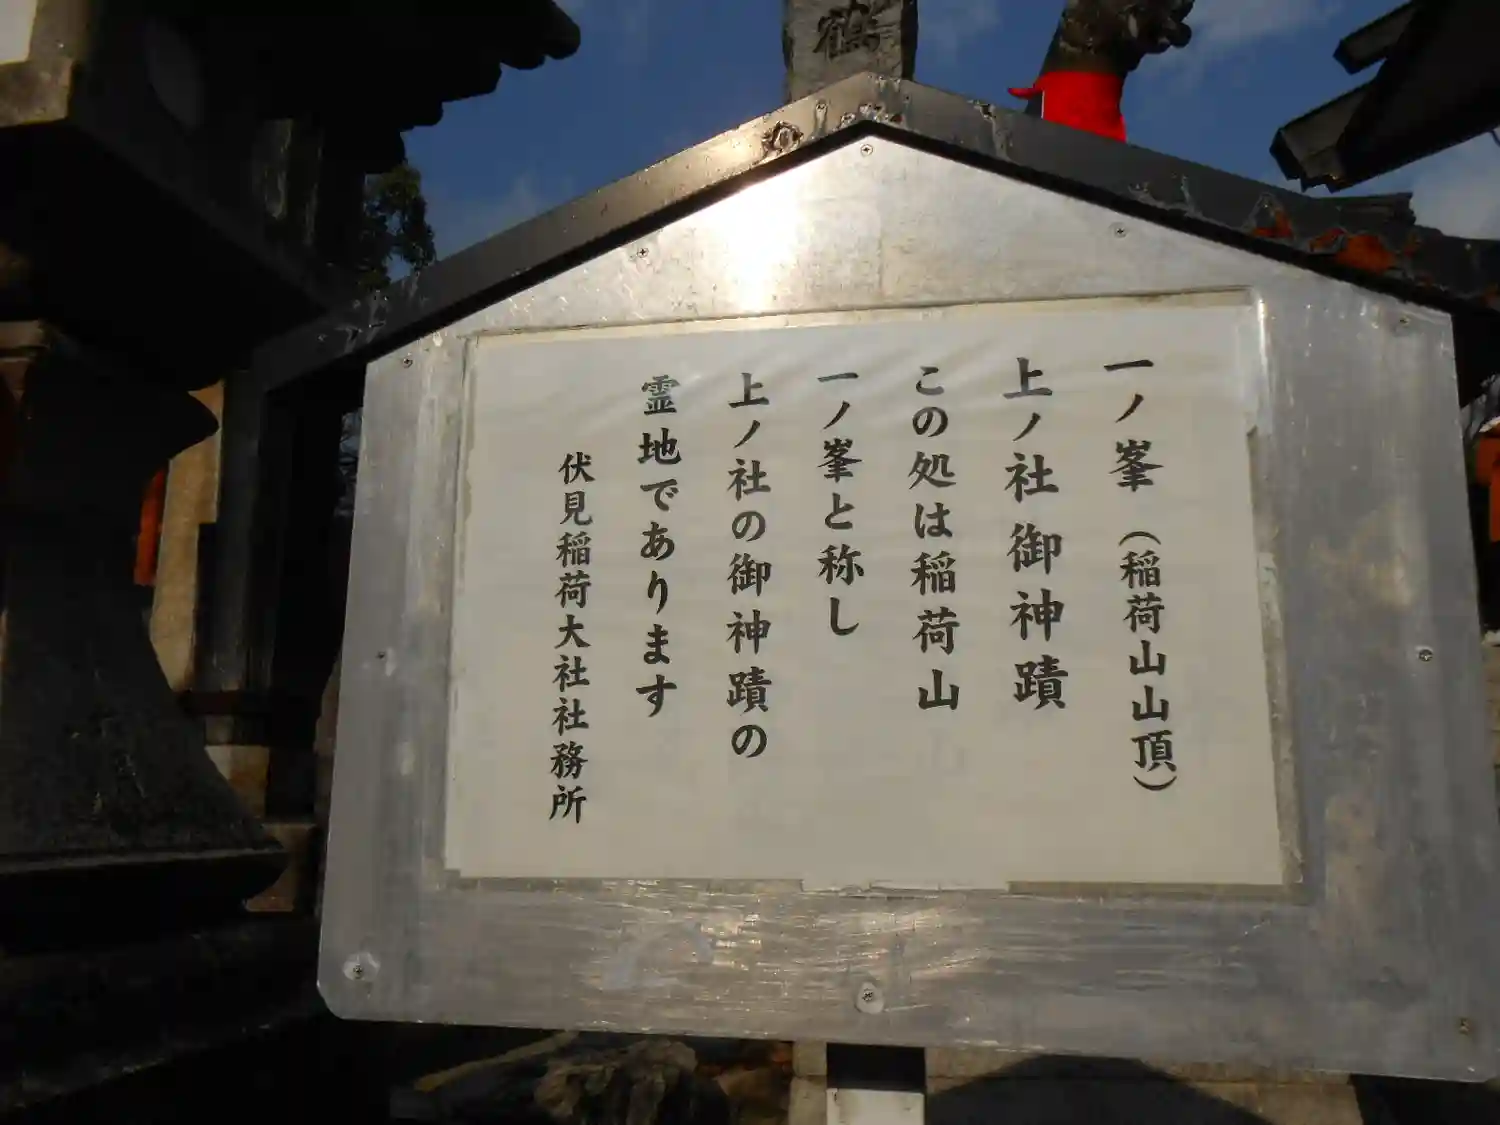 鶴
一ノ峯（稲荷山山頂）
上ノ社 御神蹟
この処は稲荷山
一ノ峯と称し
上ノ社の御神蹟の
霊地であります
伏見稲荷大社社務所